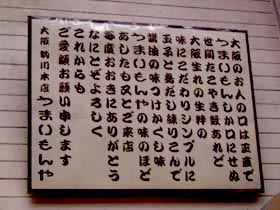 大阪のお人の口は正直で
つまいもんしか口にせぬ
世間たこやき数あれど
大阪生れの生粋の
味にこだわりシンプルに
玉子と奥だし練りこんで
醤油の味つけかくし味
つまいもんやの味のほど
あしたも又とご来店
毎度おおきにありがとう
なにとぞよろしく
これからも
ご愛顧お願い申します
大阪 本店 つまいもんや